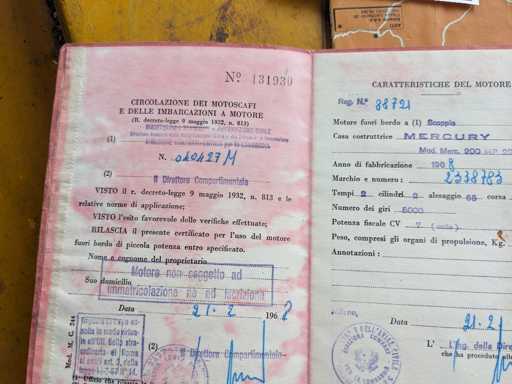 Nº 131930
CIRCOLAZIONE DEI MOTOSCAFI
E DELLE IMBARCAZIONI A MOTORE
(R. decreto-legge 9 maggio 1932, n. 813)
(1)
N. 040427M
(2) Il Direttore Compartimentale
VISTO il r. decreto-legge 9 maggio 1932, n. 813 e le
relative norme di applicazione;
VISTO l'esito favorevole delle verifiche effettuate;
RILASCIA il presente certificato per l'uso del motore
fuori bordo di piccola potenza entro specificato.
Nome e cognome del proprietario
Motore non soggetto ad
immatricolazione nè ad iscrizione
Suo domicilio
Data 21. 2 196
Il Direttore Compartimentale
Mod. M. C. 244
CARATTERISTICHE DEL MOTORE
Reg. N.° 88721
Motore fuori bordo a (1) Scoppio
Casa costruttrice MERCURY
Mod. Merc. 200
Anno di fabbricazione 1968
Marchio e numero: 2338783
Tempi 2 cilindri 2 alesaggio 65 corsa
Numero dei giri 5000
Potenza fiscale CV 7
Peso, compresi gli organi di propulsione, Kg.
Annotazioni:
Data 21. 2
L' Ing. della
che ha proceduto